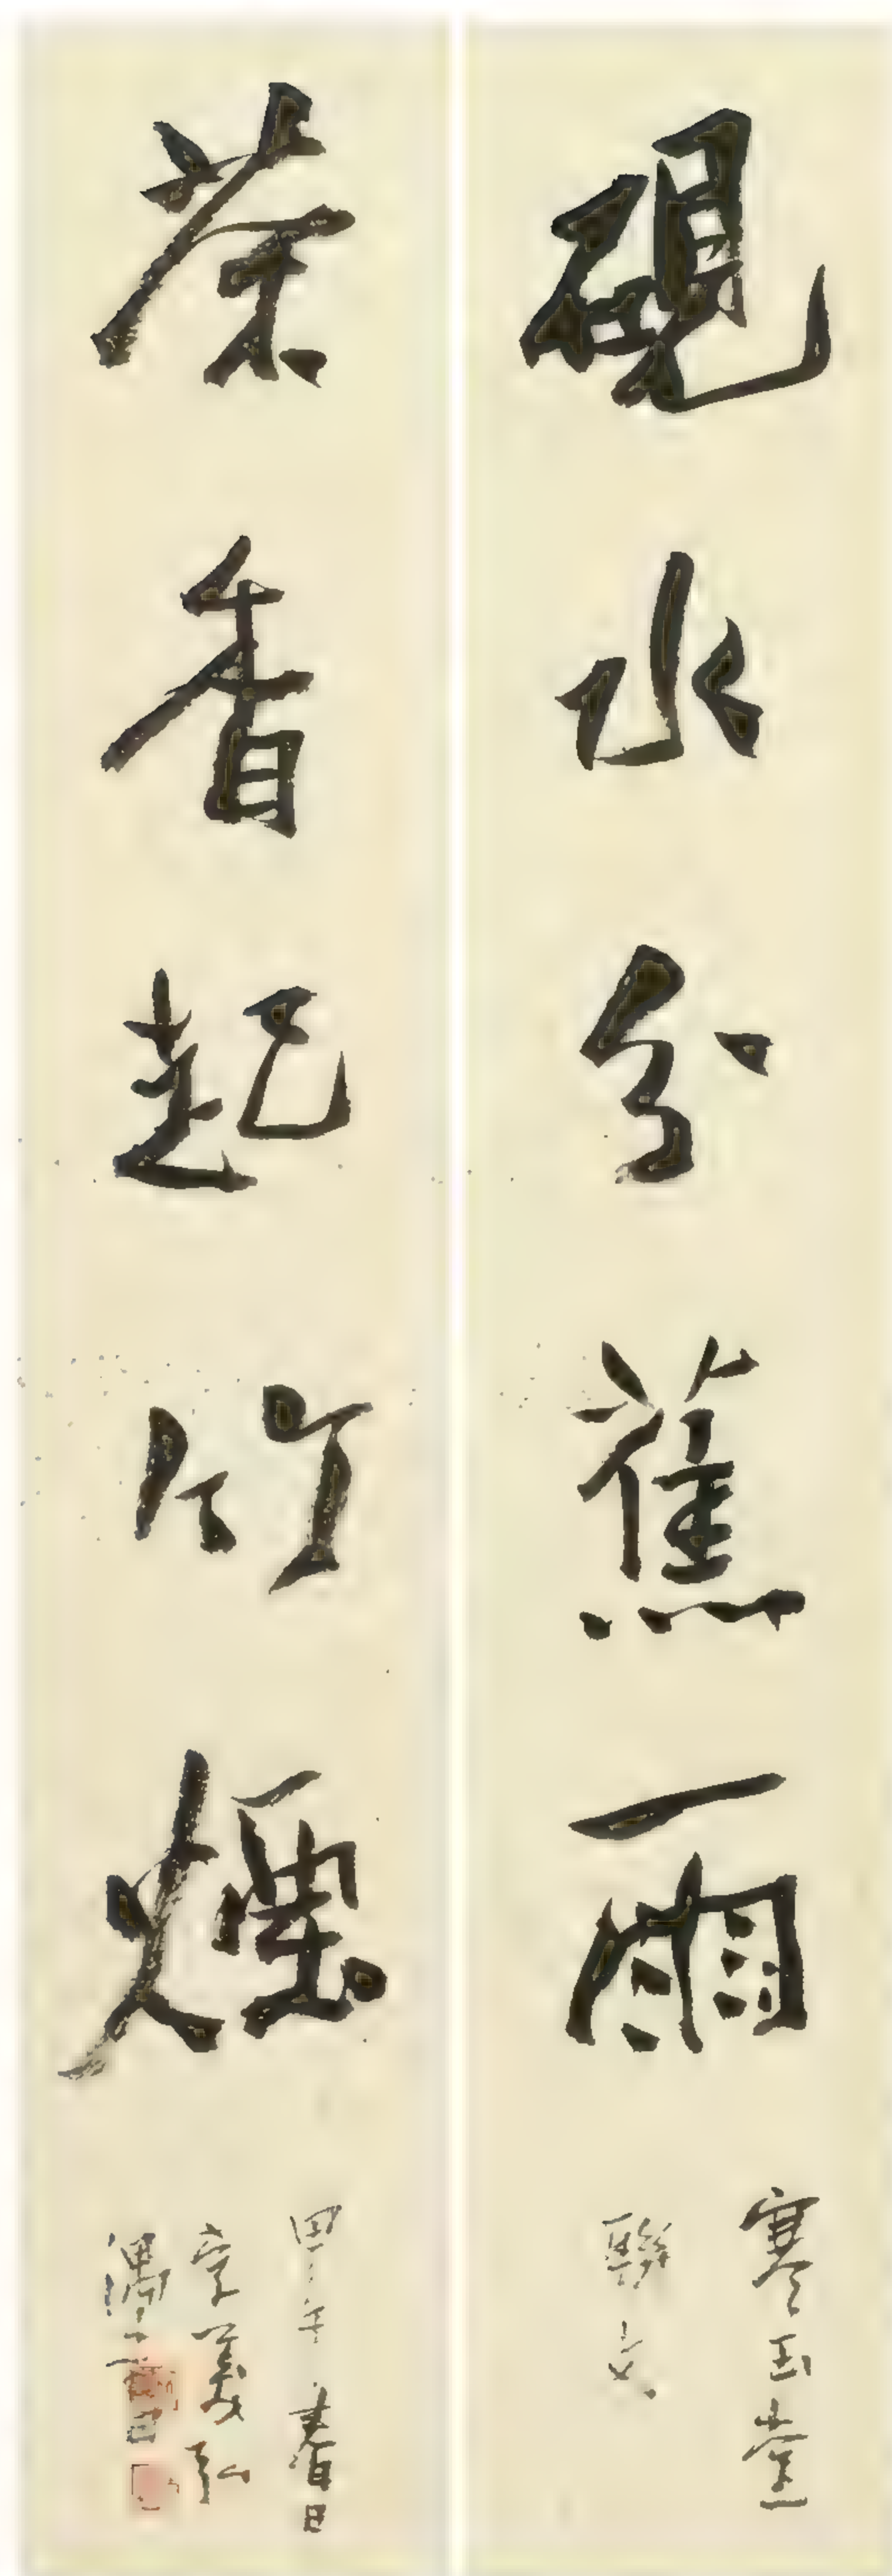 硯水分蕉雨
寒玉堂
聯文
茶香起竹煙
甲午年春日